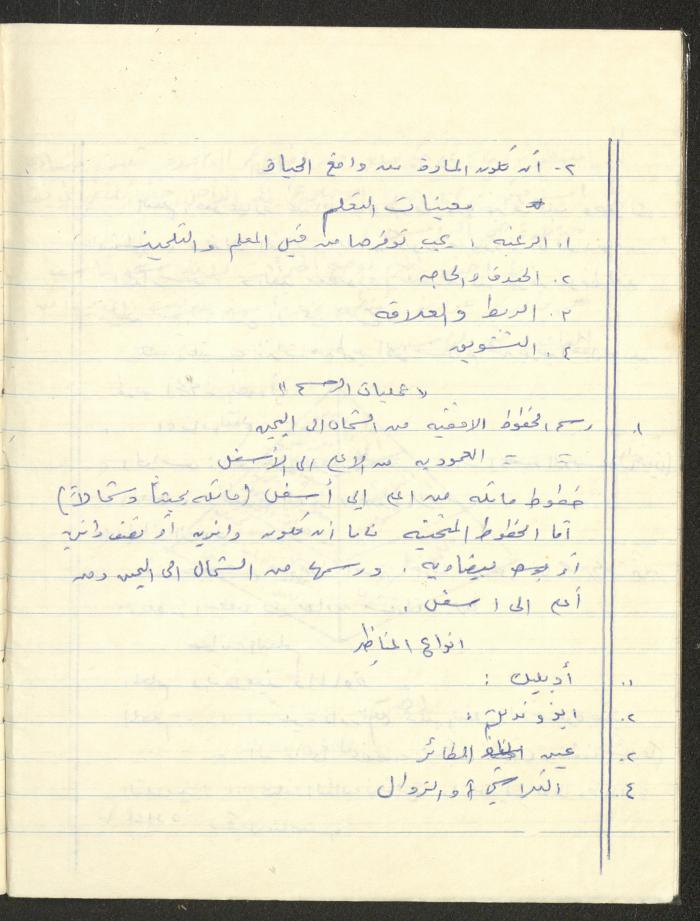 ٢. أن تكون المادة من واقع الحياة
معينات التعلم
١. الرغبة : يجب توفرها من قبل المعلم والتلميذ
٢. الهدف والحاجه
٣. الربط والعلاقه
٤. التشويق
"عمليات الرسم"
١. رسم الخطوط الافقيه من الشمال الى اليمين
= = العموديه من الاعلى الى الأسفل
خطوط مائله من اعلى إلى أسفل (مائله يميناً وشمالاً)
أما الخطوط المنحنيه فاما ان تكون دائريه أو نصف دائريه
أو بيضاويه . ورسمها من الشمال الى اليمين ومن
أعلى الى اسفل .
انواع المناظر
١. أدبليك :
٢. ايزومتريك :
٣. عين الطائر
٤. التلاشي أو الزوال